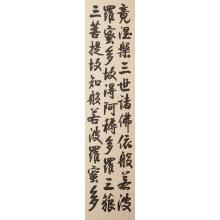 竟涅槃三世諸佛依般若波
羅蜜多故得阿耨多羅三藐
三菩提故知般若波羅蜜多